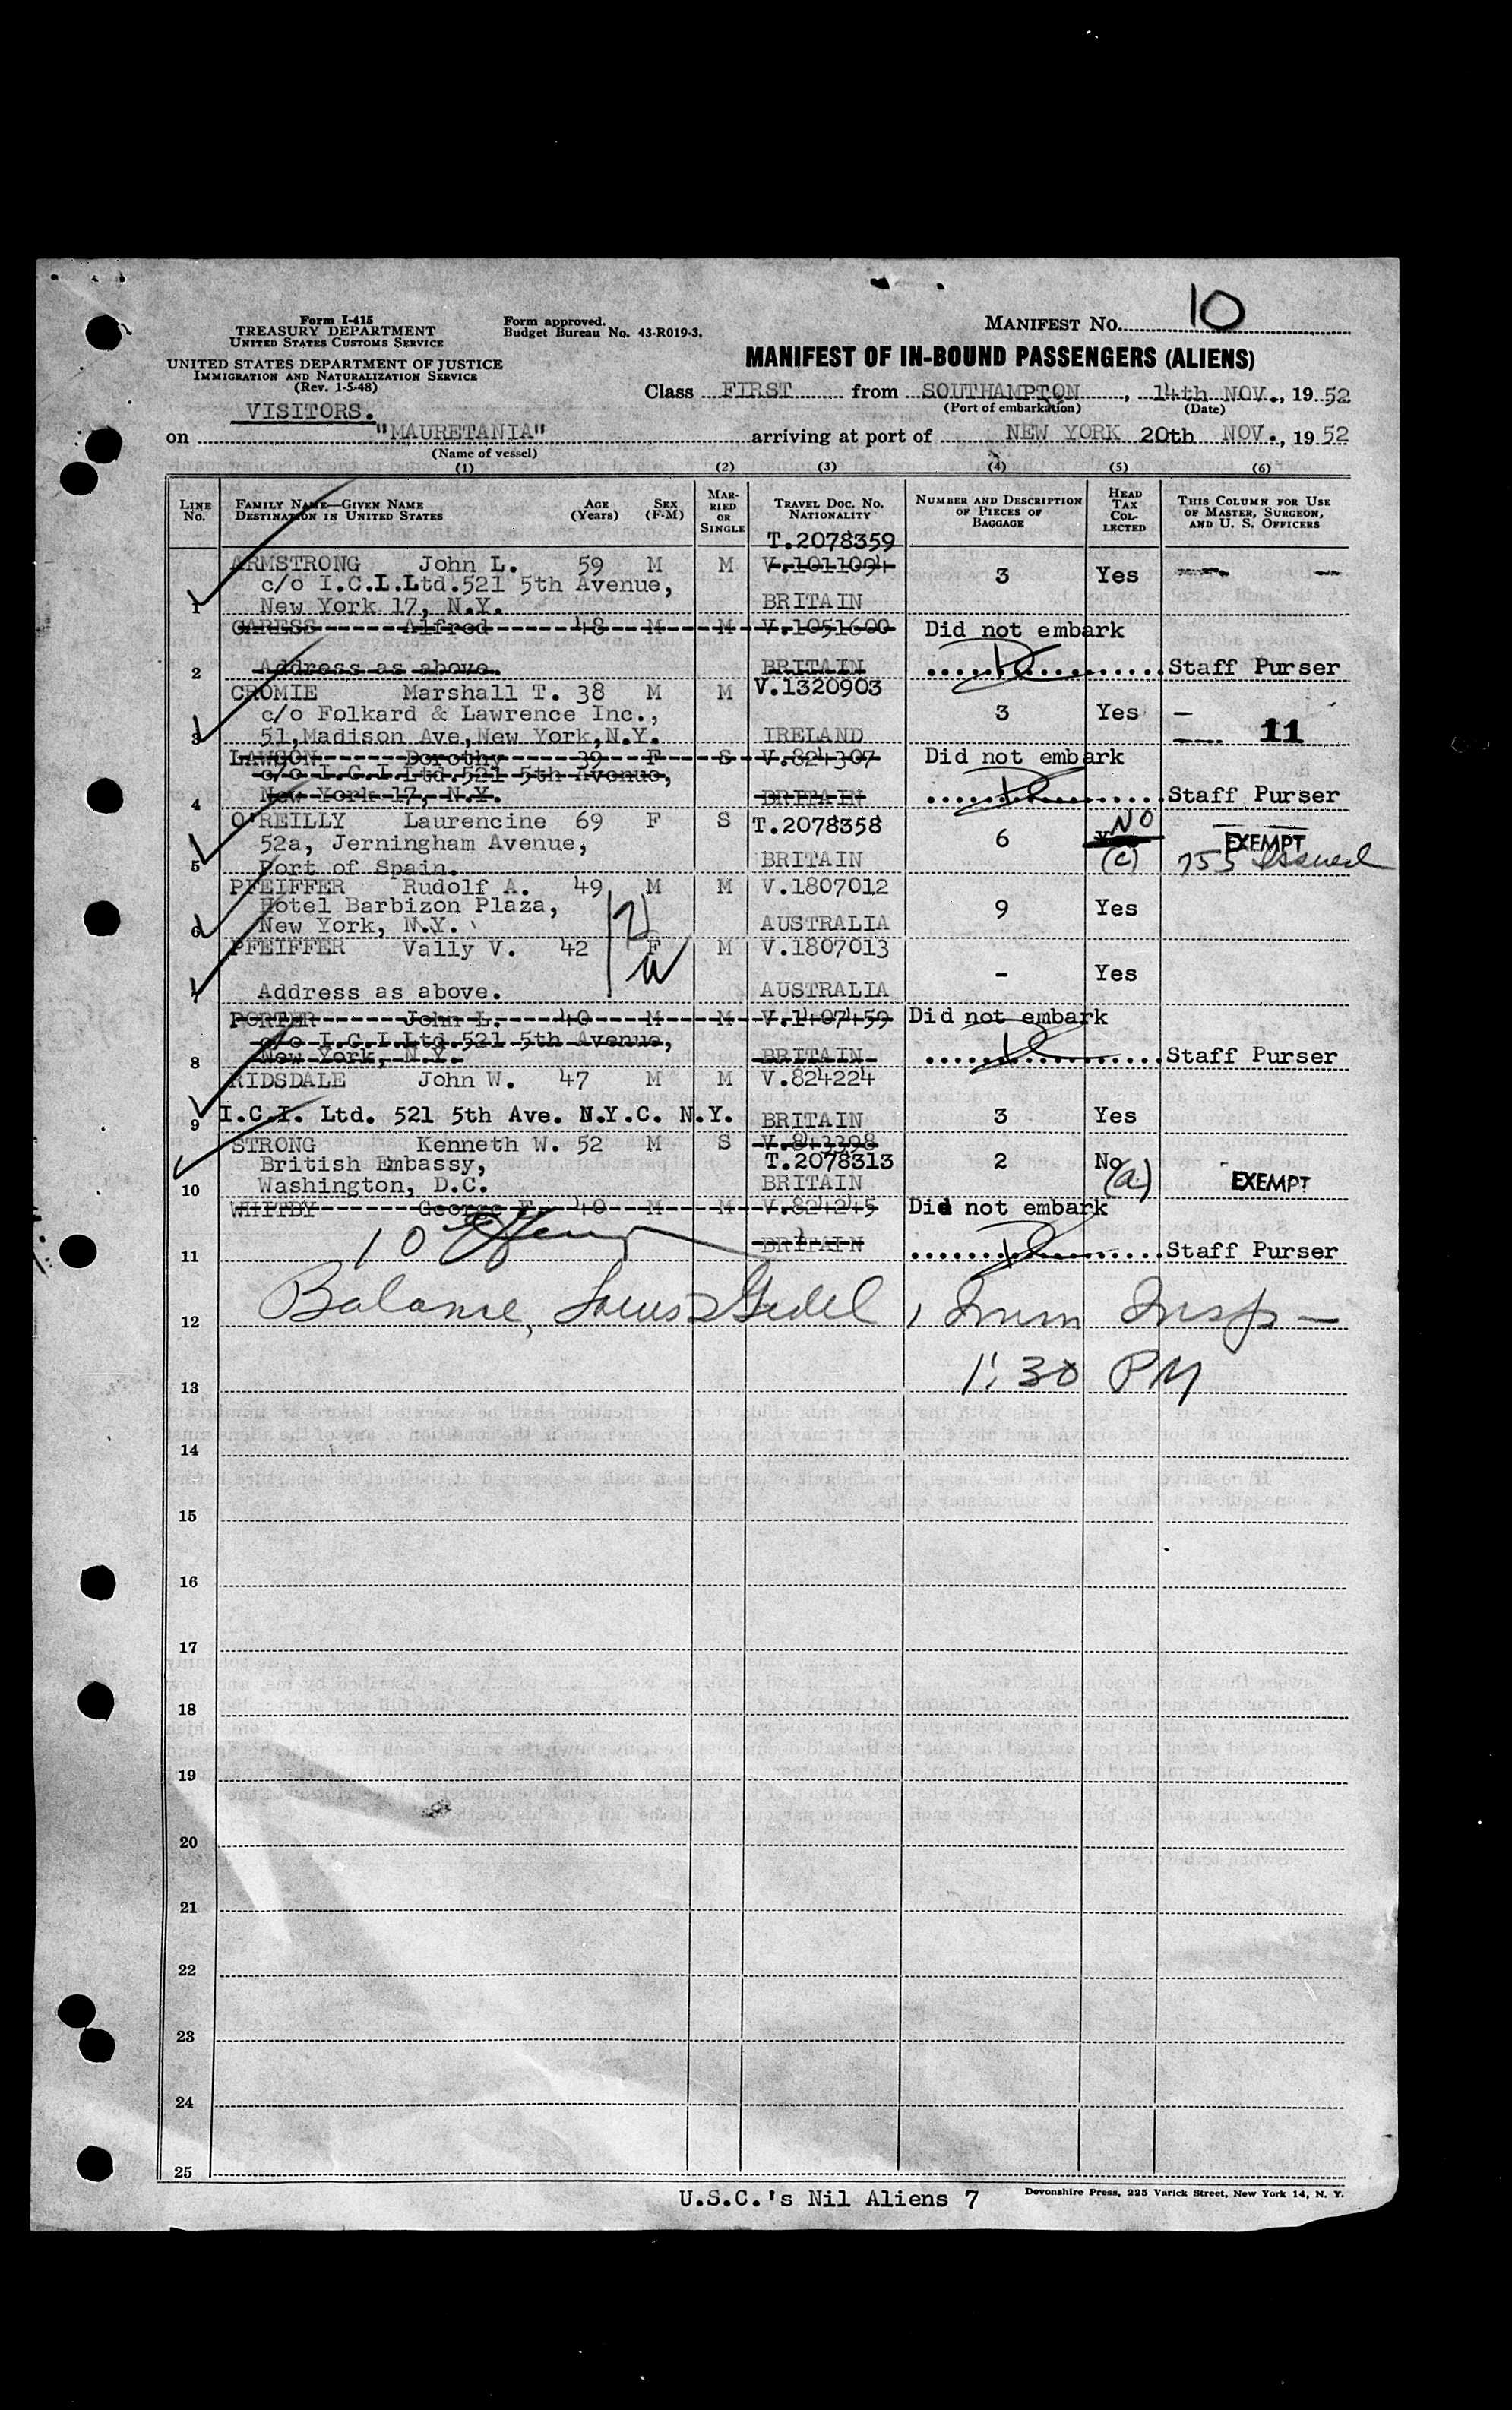 10
Form I-415
TREASURY DEPARTMENT
UNITED STATES CUSTOMS SERVICE
UNITED STATES DEPARTMENT OF JUSTICE
IMMIGRATION AND NATURALIZATION SERVICE
(Rev. 1-5-48)
Form approved.
Budget Bureau No. 43-R019-3.
MANIFEST NO.
MANIFEST OF IN-BOUND PASSENGERS (ALIENS)
Class FIRST from SOUTHAMPTON, 14th NOV., 19 52
(Port of embarkation) (Date)
VISITORS.
on "MAURETANIA" arriving at port of NEW YORK 20th NOV., 19 52
(Name of vessel)
(1) (2) (3) (4) (5) (6)
LINE NO. FAMILY NAME—GIVEN NAME DESTINATION IN UNITED STATES AGE (Years) SEX (F-M) MARRIED OR SINGLE TRAVEL DOC. NO. NATIONALITY NUMBER AND DESCRIPTION OF PIECES OF BAGGAGE HEAD TAX COLLECTED THIS COLUMN FOR USE OF MASTER, SURGEON, AND U. S. OFFICERS
T.2078359
ARMSTRONG John L. 59 M M V.1011094
c/o I.C.I.Ltd.521 5th Avenue, 3 Yes
1 New York 17, N.Y. BRITAIN
CARESS Alfred 48 M M V.1051600 Did not embark
2 Address as above. BRITAIN Staff Purser
CROMIE Marshall T. 38 M M V.1320903
c/o Folkard & Lawrence Inc., 3 Yes -
3 51,Madison Ave,New York,N.Y. IRELAND 11
LAWSON Dorothy 39 F S V.824307 Did not embark
c/o I.C.I.Ltd.521 5th Avenue,
4 New York 17, N.Y. BRITAIN Staff Purser
O'REILLY Laurencine 69 F S T.2078358 NO
52a, Jerningham Avenue, 6 EXEMPT
5 Port of Spain. BRITAIN (c) 755 issued
PFEIFFER Rudolf A. 49 M M V.1807012
Hotel Barbizon Plaza, 9 Yes
6 New York, N.Y. AUSTRALIA
PFEIFFER Vally V. 42 F M V.1807013
- Yes
7 Address as above. AUSTRALIA
PORTER John L. 40 M M V.1407459 Did not embark
c/o I.C.I.Ltd.521 5th Avenue,
8 New York, N.Y. BRITAIN Staff Purser
RIDSDALE John W. 47 M M V.824224
9 I.C.I. Ltd. 521 5th Ave. N.Y.C. N.Y. BRITAIN 3 Yes
STRONG Kenneth W. 52 M S V.843398
British Embassy, T.2078313 2 No
10 Washington, D.C. BRITAIN (a) EXEMPT
WHITBY George F. 40 M M V.824245 Did not embark
11 10 BRITAIN Staff Purser
12 Balance, Louis Gedel, Imm Insp —
13 1:30 PM
14
15
16
17
18
19
20
21
22
23
24
25
U.S.C.'s Nil Aliens 7
Devonshire Press, 225 Varick Street, New York 14, N. Y.